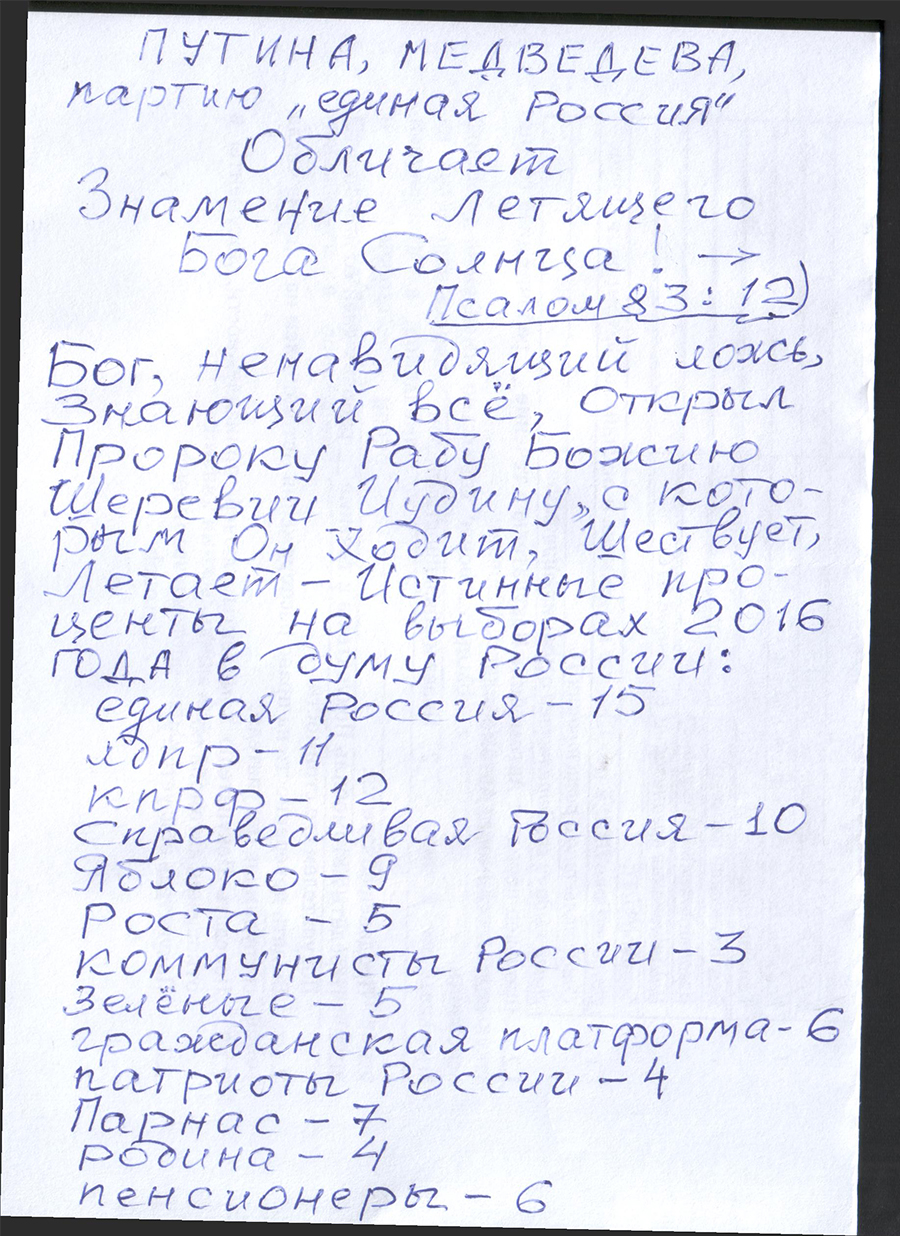 ПУТИНА, МЕДВЕДЕВА,
партию „единая Россия“
Обличает
Знамение Летящего
Бога Солнца! →
Псалом 83:12)
Бог, ненавидящий ложь,
Знающий всё, Открыл
Пророку Рабу Божию
Шеревии Иудину, с кото-
рым Он Ходит, Шествует,
Летает – Истинные про-
центы на выборах 2016
ГОДА в думу России:
единая Россия – 15
лдпр – 11
кпрф – 12
Справедливая Россия – 10
Яблоко – 9
Роста – 5
коммунисты России – 3
Зелёные – 5
гражданская платформа – 6
патриоты России – 4
Парнас – 7
родина – 4
пенсионеры – 6